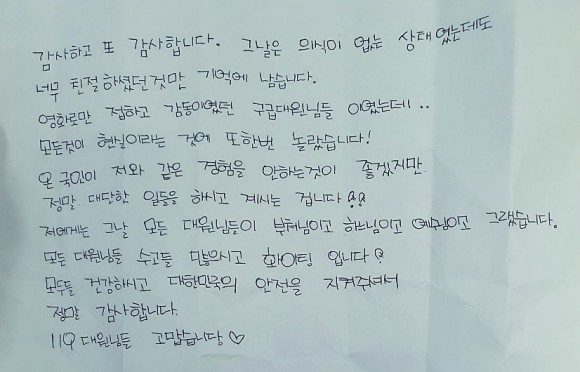 감사하고 또 감사합니다. 그날은 의식이 없는 상태였는데도
너무 친절하셨던것만 기억에 남습니다.
영화로만 접하고 감동이였던 구급대원님들 이였는데..
모든것이 현실이라는 것에 또한번 놀랐습니다!
온 국민이 저와 같은 경험을 안하는것이 좋겠지만.
정말 대단한 일들을 하시고 계시는 겁니다!!
저에게는 그날 모든 대원님들이 부처님이고 하느님이고 예수님이고 그랬습니다.
모든 대원님들 수고들 많으시고 화이팅 입니다!
모두들 건강하시고 대한민국의 안전을 지켜주셔서
정말 감사합니다.
119 대원님들 고맙습니당♡